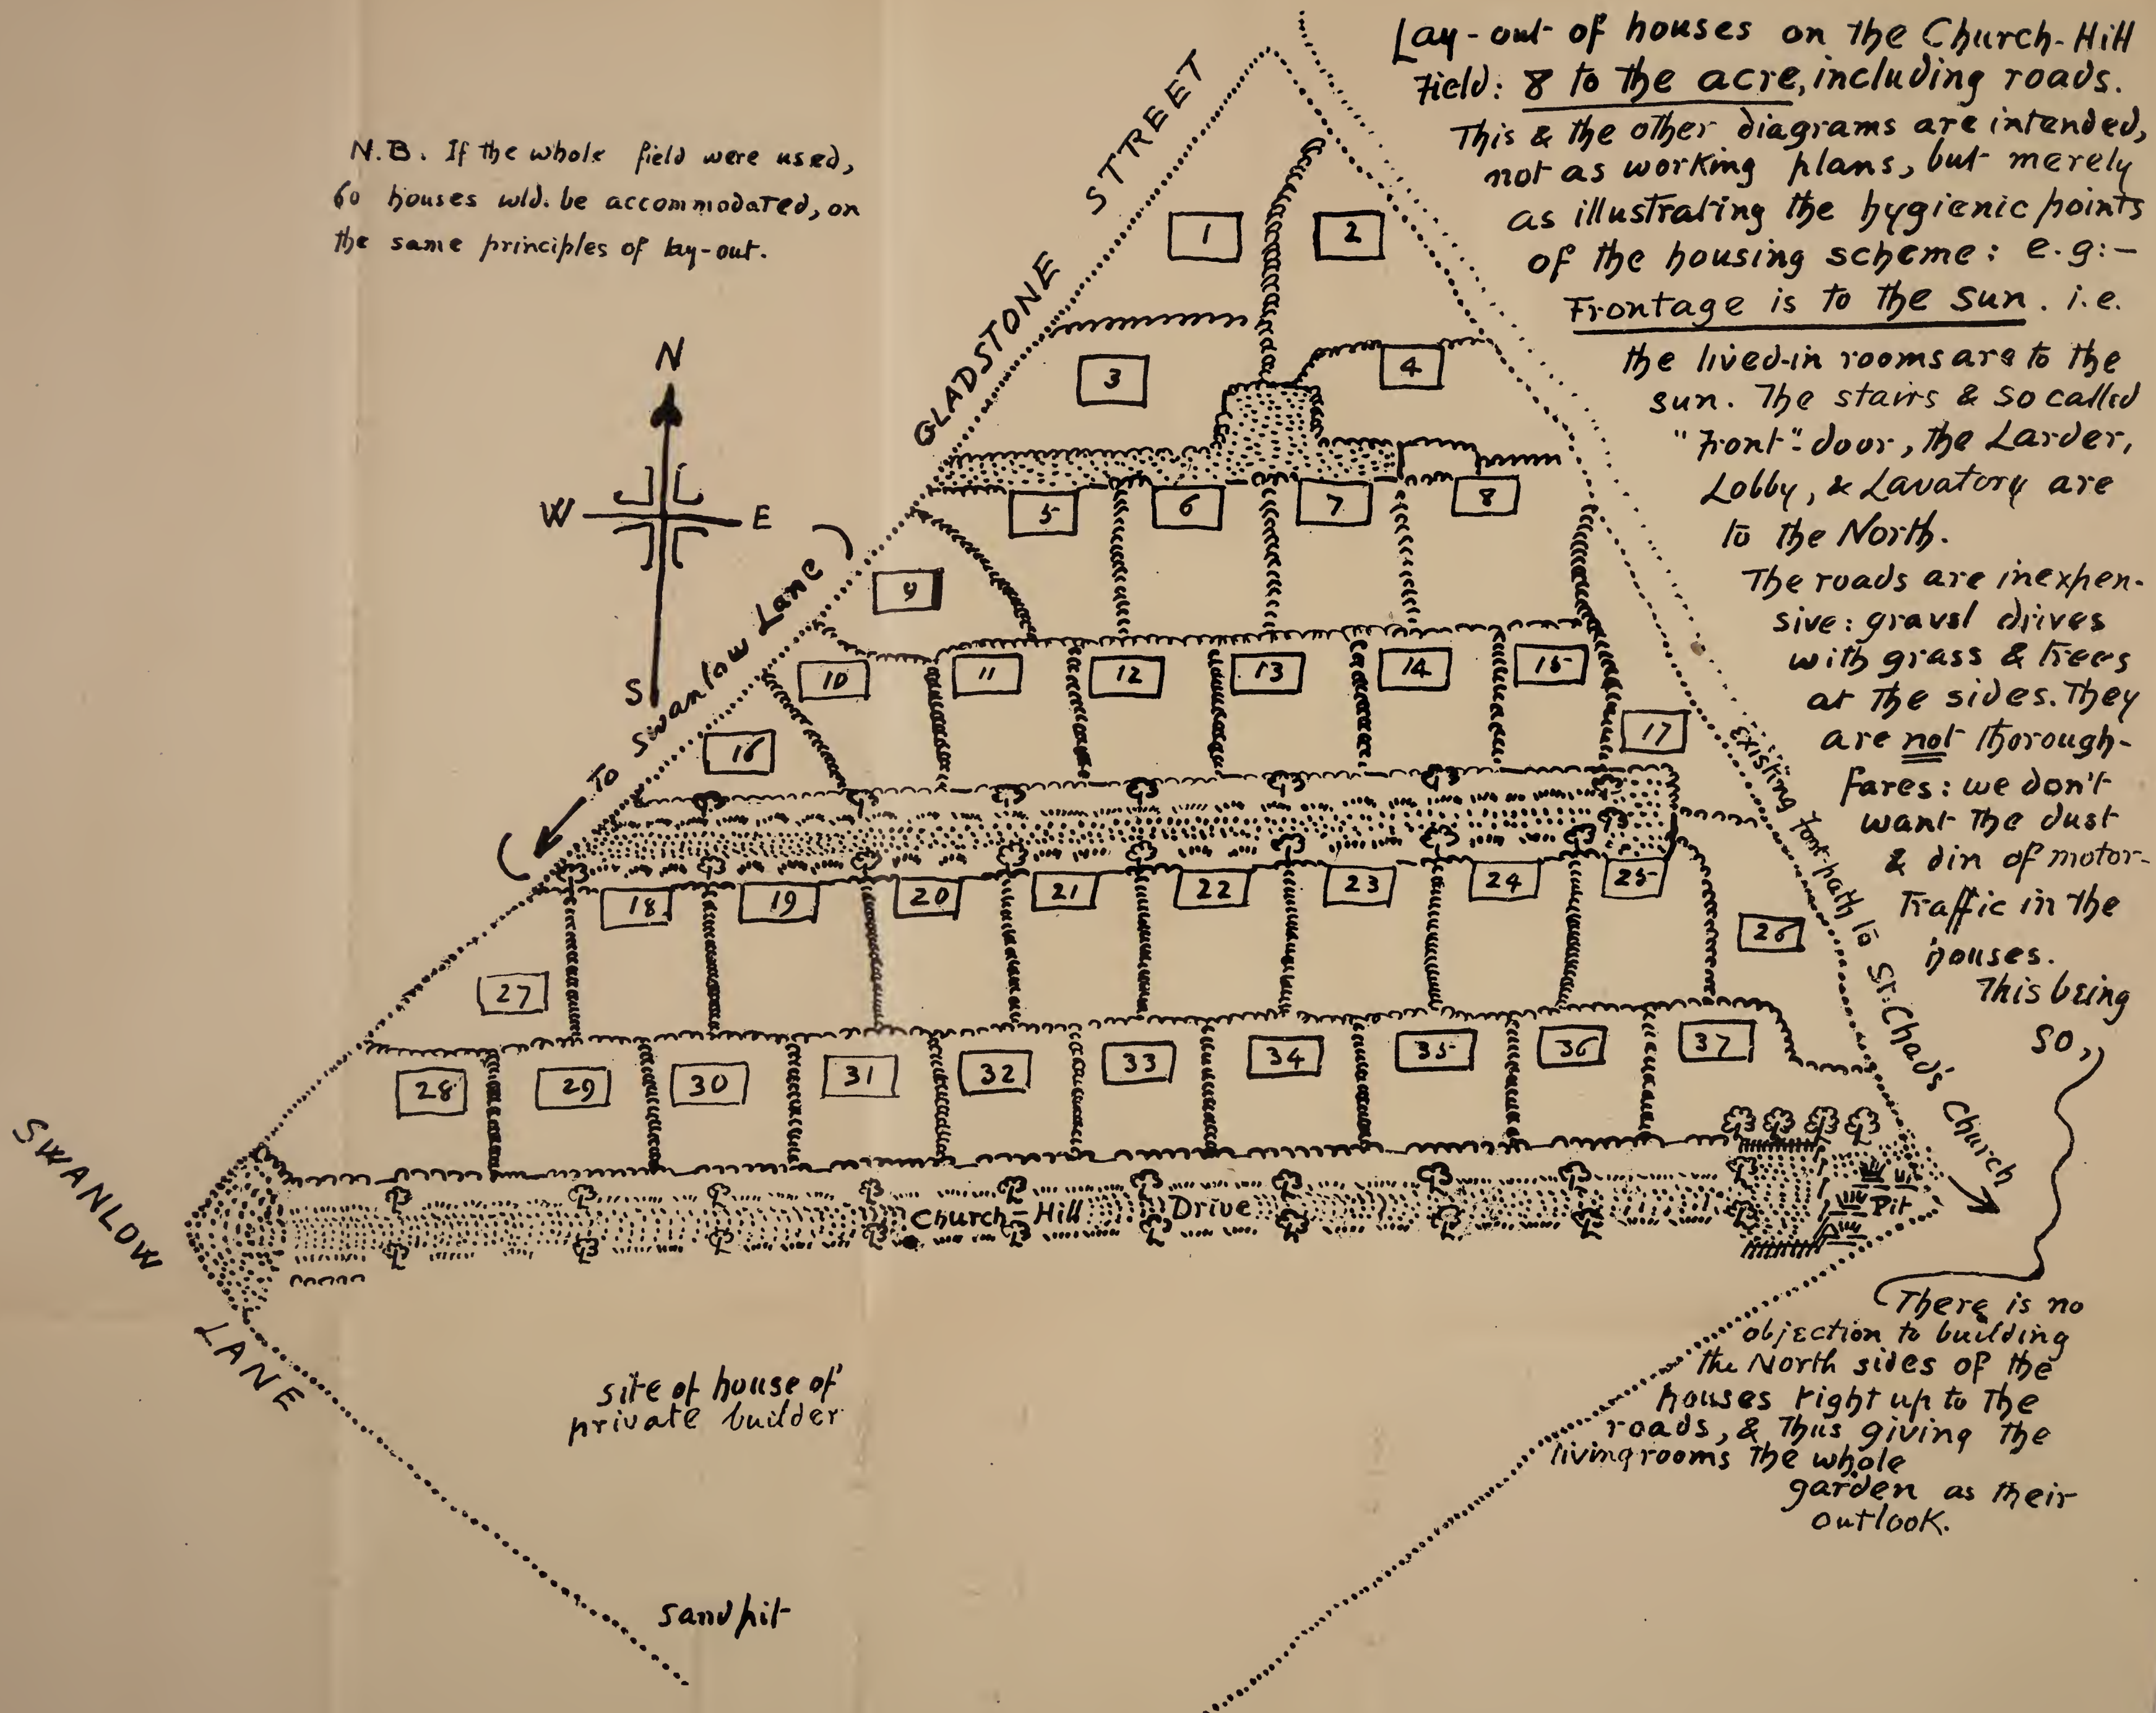 Lay-out of houses on the Church-Hill
Field: 8 to the acre, including roads.
This & the other diagrams are intended,
not as working plans, but merely
as illustrating the hygienic points
of the housing scheme: e.g:—
Frontage is to the sun. i.e.
the lived-in rooms are to the
sun. The stairs & so called
"Front"-door, the Larder,
Lobby, & Lavatory are
to the North.
The roads are inexpen-
sive: gravel drives
with grass & trees
at the sides. They
are not thorough-
fares: we don't
want the dust
& din of motor-
traffic in the
houses.
This being
so,,
There is no
objection to building
the North sides of the
houses right up to the
roads, & thus giving the
living rooms the whole
garden as their
outlook.
N.B. If the whole field were used,
60 houses wld. be accommodated, on
the same principles of lay-out.
N
W E
S
GLADSTONE STREET
To Swanlow Lane
Existing foot-path to St. Chad's Church
1 2
3 4
5 6 7 8
9
10 11 12 13 14 15
16 17
18 19 20 21 22 23 24 25
26
27
28 29 30 31 32 33 34 35 36 37
Church-Hill Drive
Pit
SWANLOW LANE
site of house of
private builder
sandpit